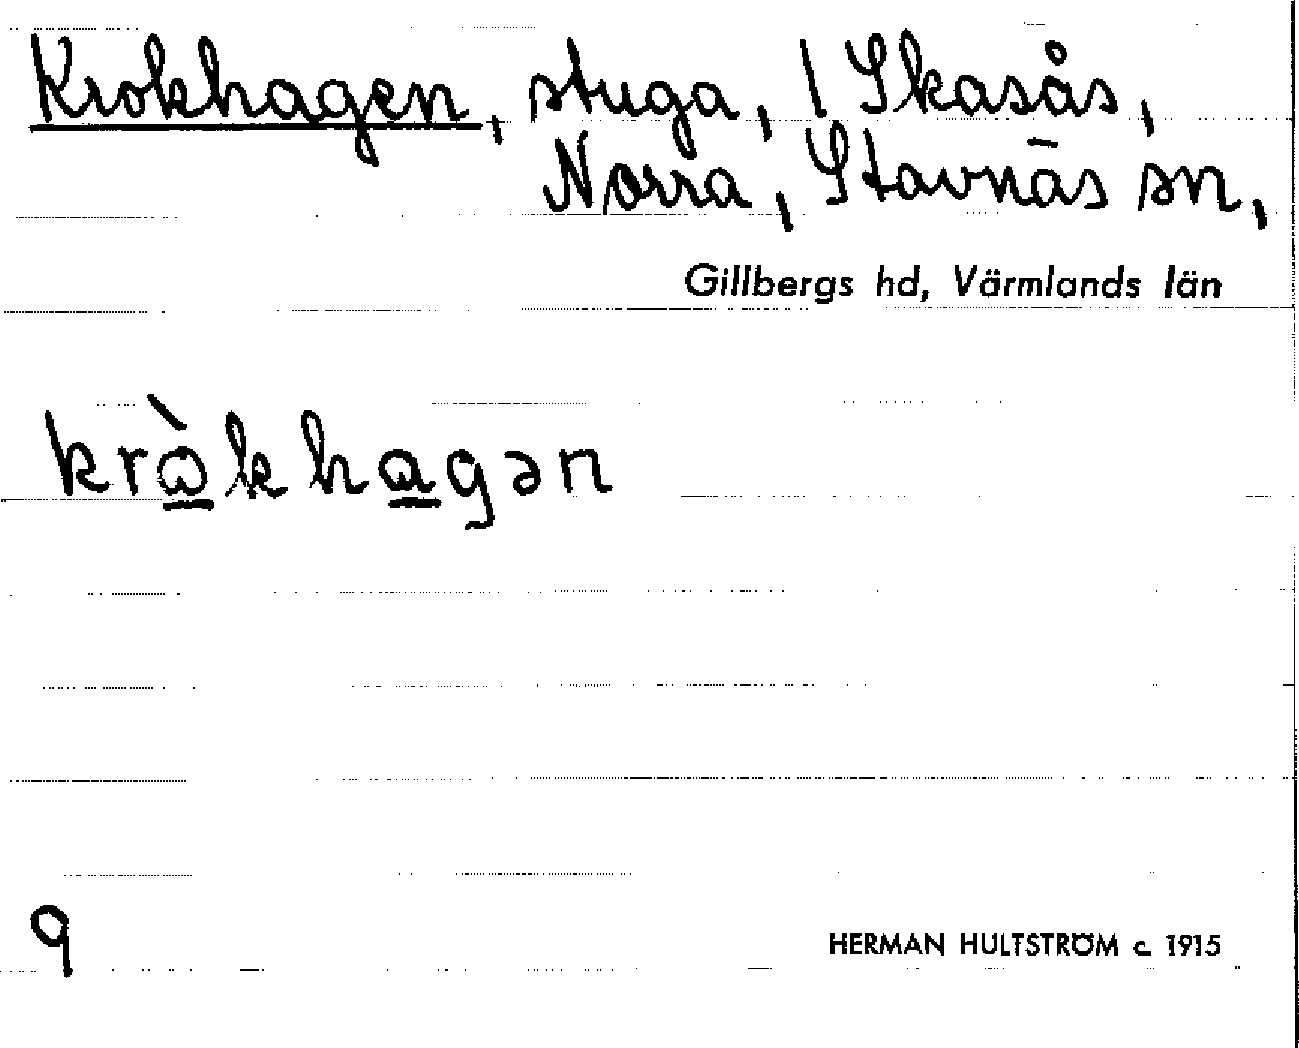 Krokhagen, stuga, / Skasås,
Norra, Stavnäs sn,
Gillbergs hd, Värmlands län
kròkhagən
9
HERMAN HULTSTRÖM c. 1915